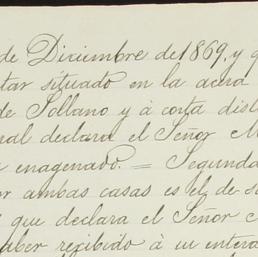 de Diciembre de 1869, y q
tar situado en la acera
de Sollano y á corta dist
ral declara el Señor M
enagenado. = Segunda
ambas casas es el de s
que declara el Señor
aber recibido á su entera